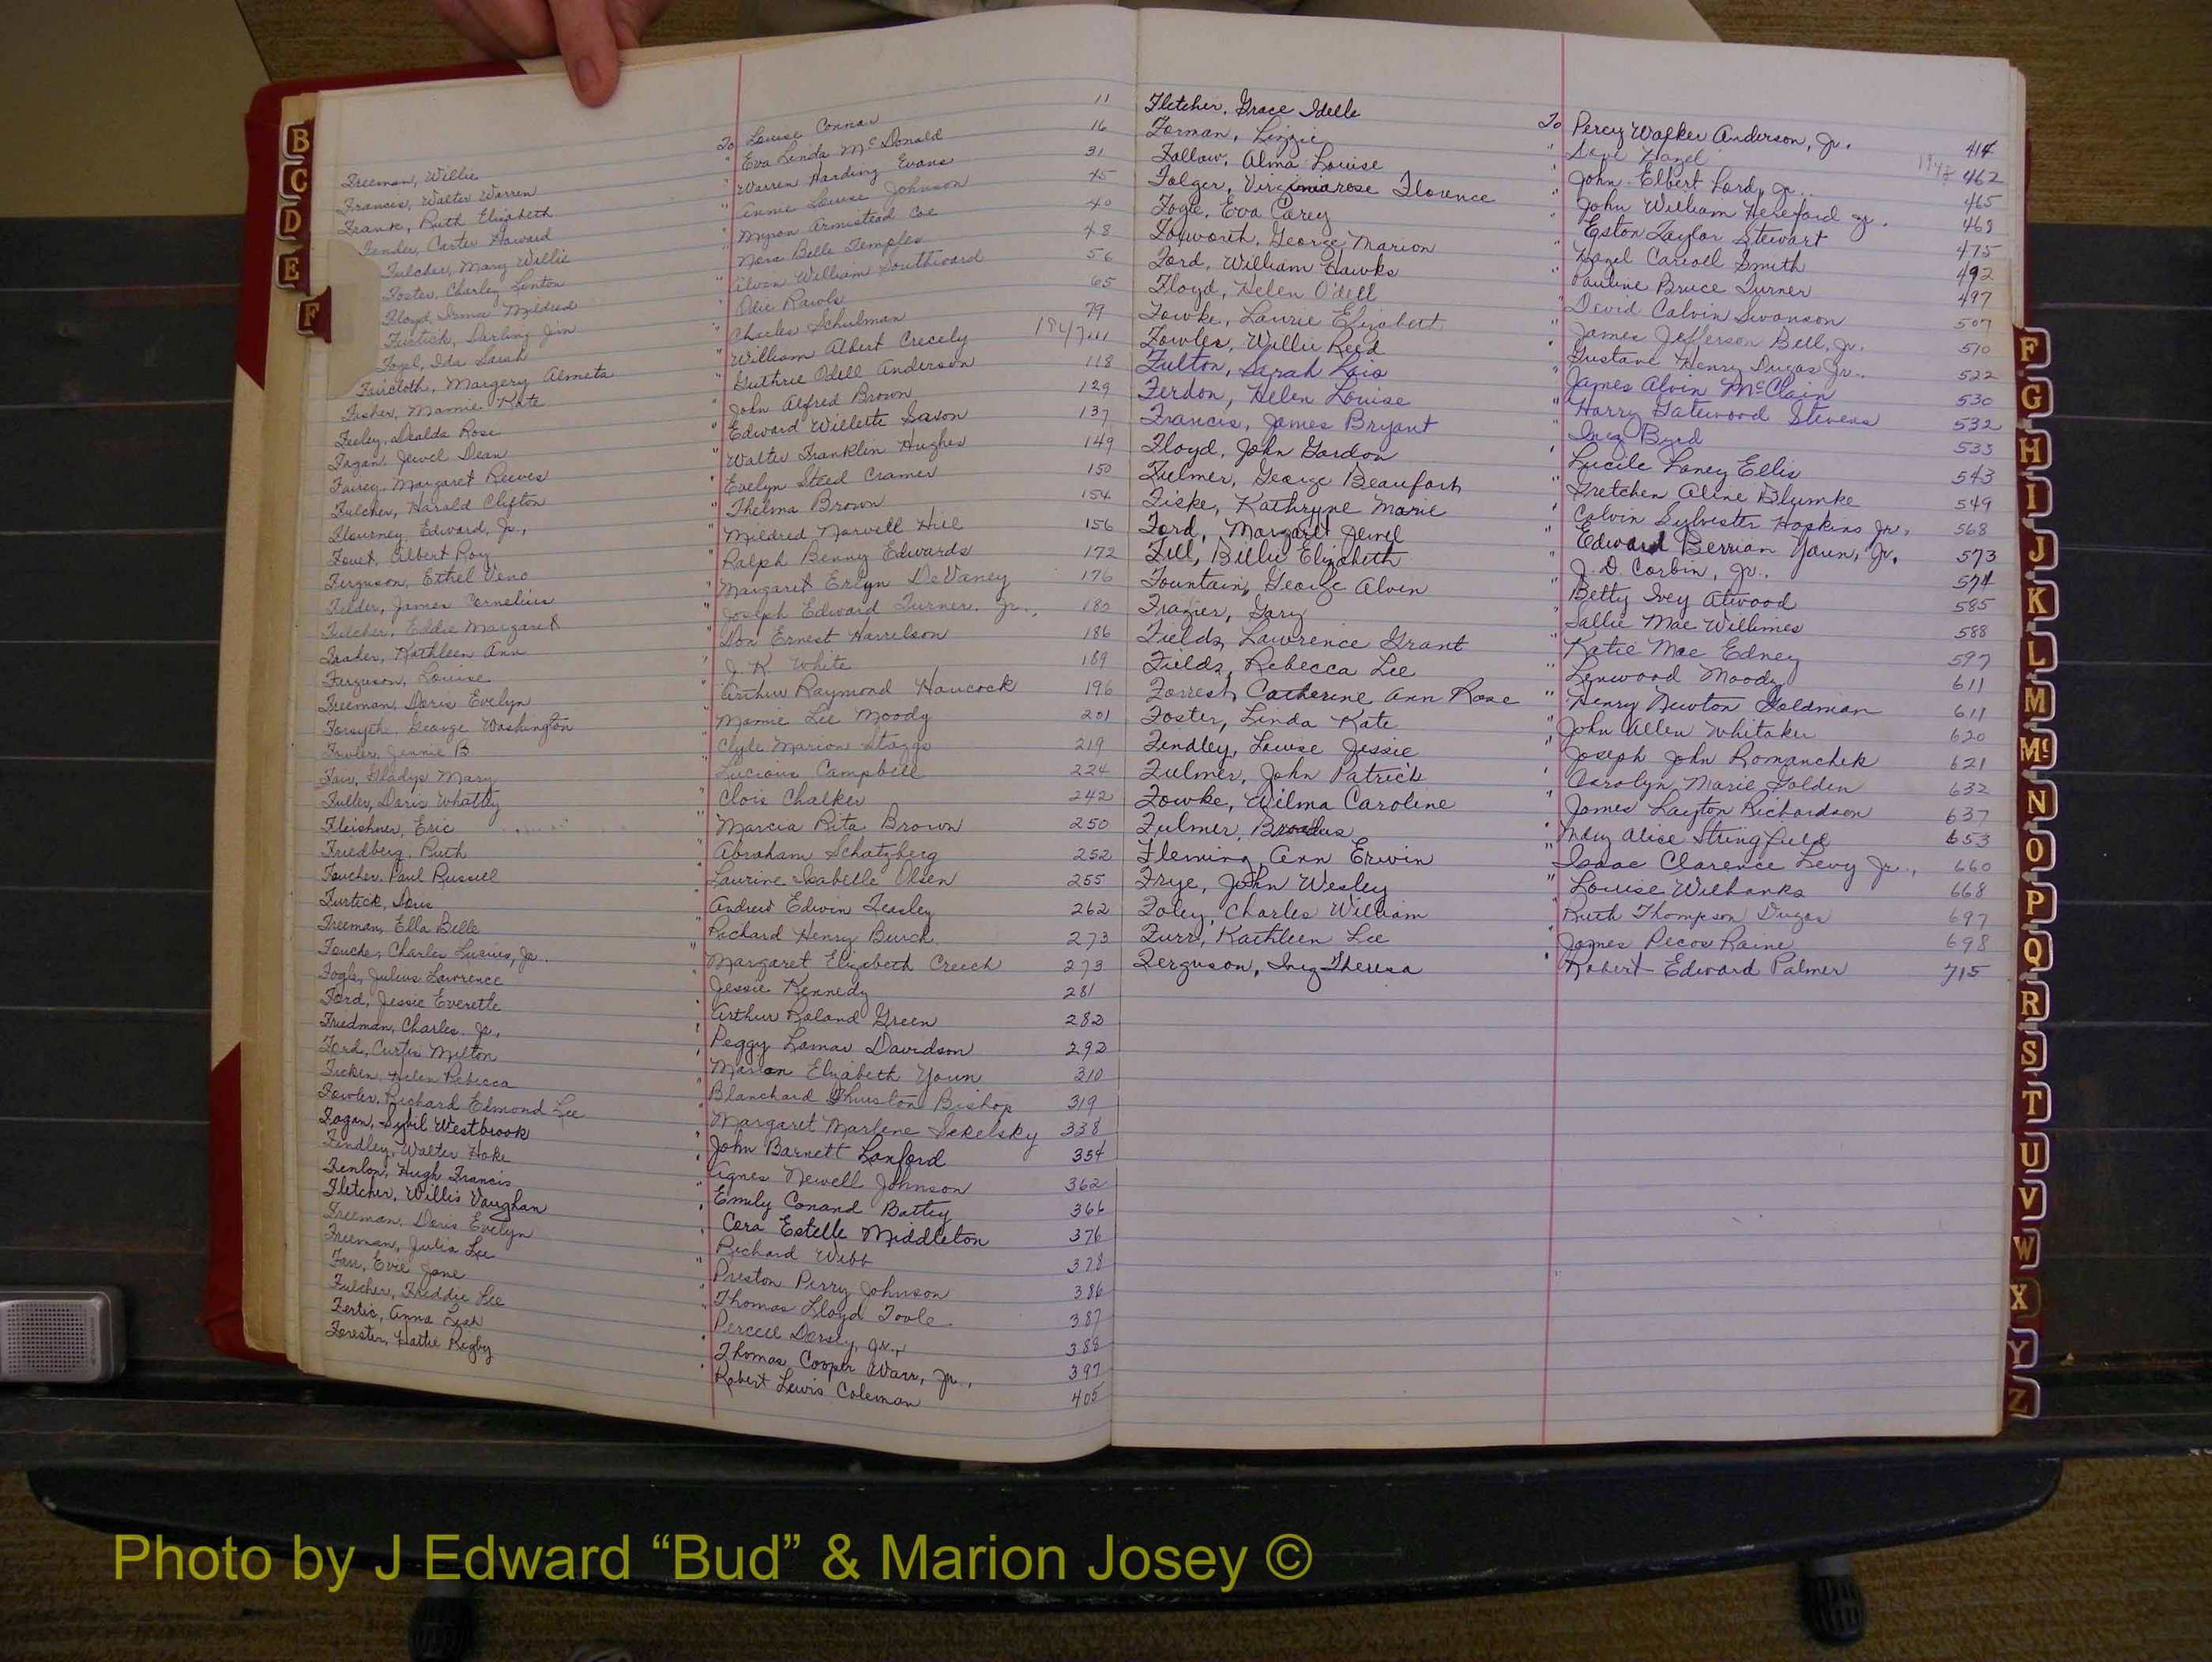 B
C
D
E
F
Freeman, Willie To Louise Connar 11
Frances, Walter Warren " Eva Linda McDonald 16
Franke, Ruth Elizabeth " Warren Harding Evans 31
Fender, Carter Howard " Annie Louise Johnson 45
Fulcher, Mary Willie " Myron Armistead Coe 40
Foster, Charley Linton " Nora Belle Temples 48
Floyd, Irma Mildred " Alvin William Southward 56
Furtick, Darling Jim " Odie Rawls 65
Fogel, Ida Sarah " Charles Schulman 79
Faircloth, Margery Almeta " William Albert Crecely 1947 111
Fisher, Mamie Kate " Guthrie Odell Anderson 118
Feeley, Dealda Rose " John Alfred Brown 129
Fagan, Jewel Dean " Edward Willette Saxon 137
Fairey, Margaret Reeves " Walter Franklin Hughes 149
Fulcher, Harald Clifton " Evelyn Steed Cramer 150
Flourney, Edward, Jr., " Thelma Brown 154
Foust, Albert Roy " Mildred Norvell Hill 156
Ferguson, Ethel Veno " Ralph Benny Edwards 172
Felder, James Cornelius " Margaret Erlyn DeVaney 176
Fulcher, Eddie Margaret " Joseph Edward Turner, Jr., 180
Fraher, Kathleen Ann " Don Ernest Harrelson 186
Ferguson, Louise " J. K. White 189
Freeman, Doris Evelyn " Arthur Raymond Haucock 196
Forsyth, George Washington " Mamie Lee Moody 201
Fowler, Jennie B " Clyde Marion Staggs 219
Faw, Gladys Mary " Lucious Campbell 224
Fuller, Doris Whatley " Clois Chalker 242
Fleishner, Eric " Marcia Rita Brown 250
Friedberg, Ruth " Abraham Schatzberg 252
Foucher, Paul Russell " Laurine Isabelle Olsen 255
Furtick, Doris " Andrew Edwin Teasley 262
Freeman, Ella Belle " Richard Henry Burch 273
Fouche, Charles Lucius, Jr. " Margaret Elizabeth Creech 273
Fogle, Julius Lawrence " Jessie Kennedy 281
Ford, Jessie Everette " Arthur Roland Green 282
Friedman, Charles, Jr., " Peggy Lamar Davidson 292
Ford, Curtis Milton " Marion Elizabeth Youn 310
Ficken, Helen Rebecca " Blanchard Thurston Bishop 319
Fowler, Richard Elmond Lee " Margaret Marlene Sekelsky 338
Fagan, Sybil Westbrook " John Barnett Lanford 354
Findley, Walter Hoke " Agnes Newell Johnson 362
Fenlon, Hugh Francis " Emily Conand Battey 366
Fletcher, Willis Vaughan " Cora Estelle Middleton 376
Freeman, Doris Evelyn " Richard Webb 378
Freeman, Julia Lee " Preston Perry Johnson 386
Farr, Evie Jane " Thomas Lloyd Toole 387
Fulcher, Freddie Lee " Percell Dorsey, Jr., 388
Fertic, Anna Leah " Thomas Cooper Warr, Jr., 397
Forester, Hattie Rigby " Robert Lewis Coleman 405
Fletcher, Grace Idelle To Percy Walker Anderson, Jr. 414
Forman, Lizzie " Dave Hazel 1948 462
Fallow, Alma Louise " John Elbert Lord, Jr. 465
Folger, Virginiarose Florence " John William Hereford Jr. 469
Fogle, Eva Carey " Eston Taylor Stewart 475
Foxworth, George Marion " Hazel Carroll Smith 492
Ford, William Hawks " Pauline Bruce Turner 497
Floyd, Helen O'dell " David Calvin Swanson 507
Fowke, Laurie Elizabeth " James Jefferson Bell, Jr. 510
Fowler, Willie Reed " Gustave Henry Dugas Jr. 522
Fulton, Sarah Lois " James Alvin McClain 530
Ferdon, Helen Louise " Harry Gatewood Stevens 532
Francis, James Bryant " Inez Byrd 533
Floyd, John Gordon " Lucile Laney Ellis 543
Fulmer, George Beaufort " Gretchen Aline Blumke 549
Fiske, Kathryne Marie " Calvin Sylvester Hopkins Jr. 568
Ford, Margaret Jewel " Edward Berrian Youn, Jr. 573
Fill, Billie Elizabeth " J. D. Corbin, Jr. 574
Fountain, George Alvin " Betty Ivey Atwood 585
Frazier, Gary " Sallie Mae Willimes 588
Fields, Lawrence Grant " Katie Mae Edney 597
Fields, Rebecca Lee " Lenwood Moody 611
Forrest, Catherine Ann Rose " Henry Newton Goldman 611
Foster, Linda Kate " John Allen Whitaker 620
Findley, Louise Jessie " Joseph John Romanchek 621
Fulmer, John Patrick " Carolyn Marie Golden 632
Fowke, Wilma Caroline " James Layton Richardson 637
Fulmer, Broadus " Mary Alice Stringfield 653
Fleming, Ann Erwin " Isaac Clarence Levy Jr., 660
Frye, John Wesley " Louise Wilbanks 668
Foley, Charles William " Ruth Thompson Dugas 697
Furr, Kathleen Lee " James Pecos Raine 698
Ferguson, Inez Theresa " Robert Edward Palmer 715
F
G
H
I
J
K
L
M
Mc
N
O
P
Q
R
S
T
U
V
W
X
Y
Z
Photo by J Edward “Bud” & Marion Josey ©